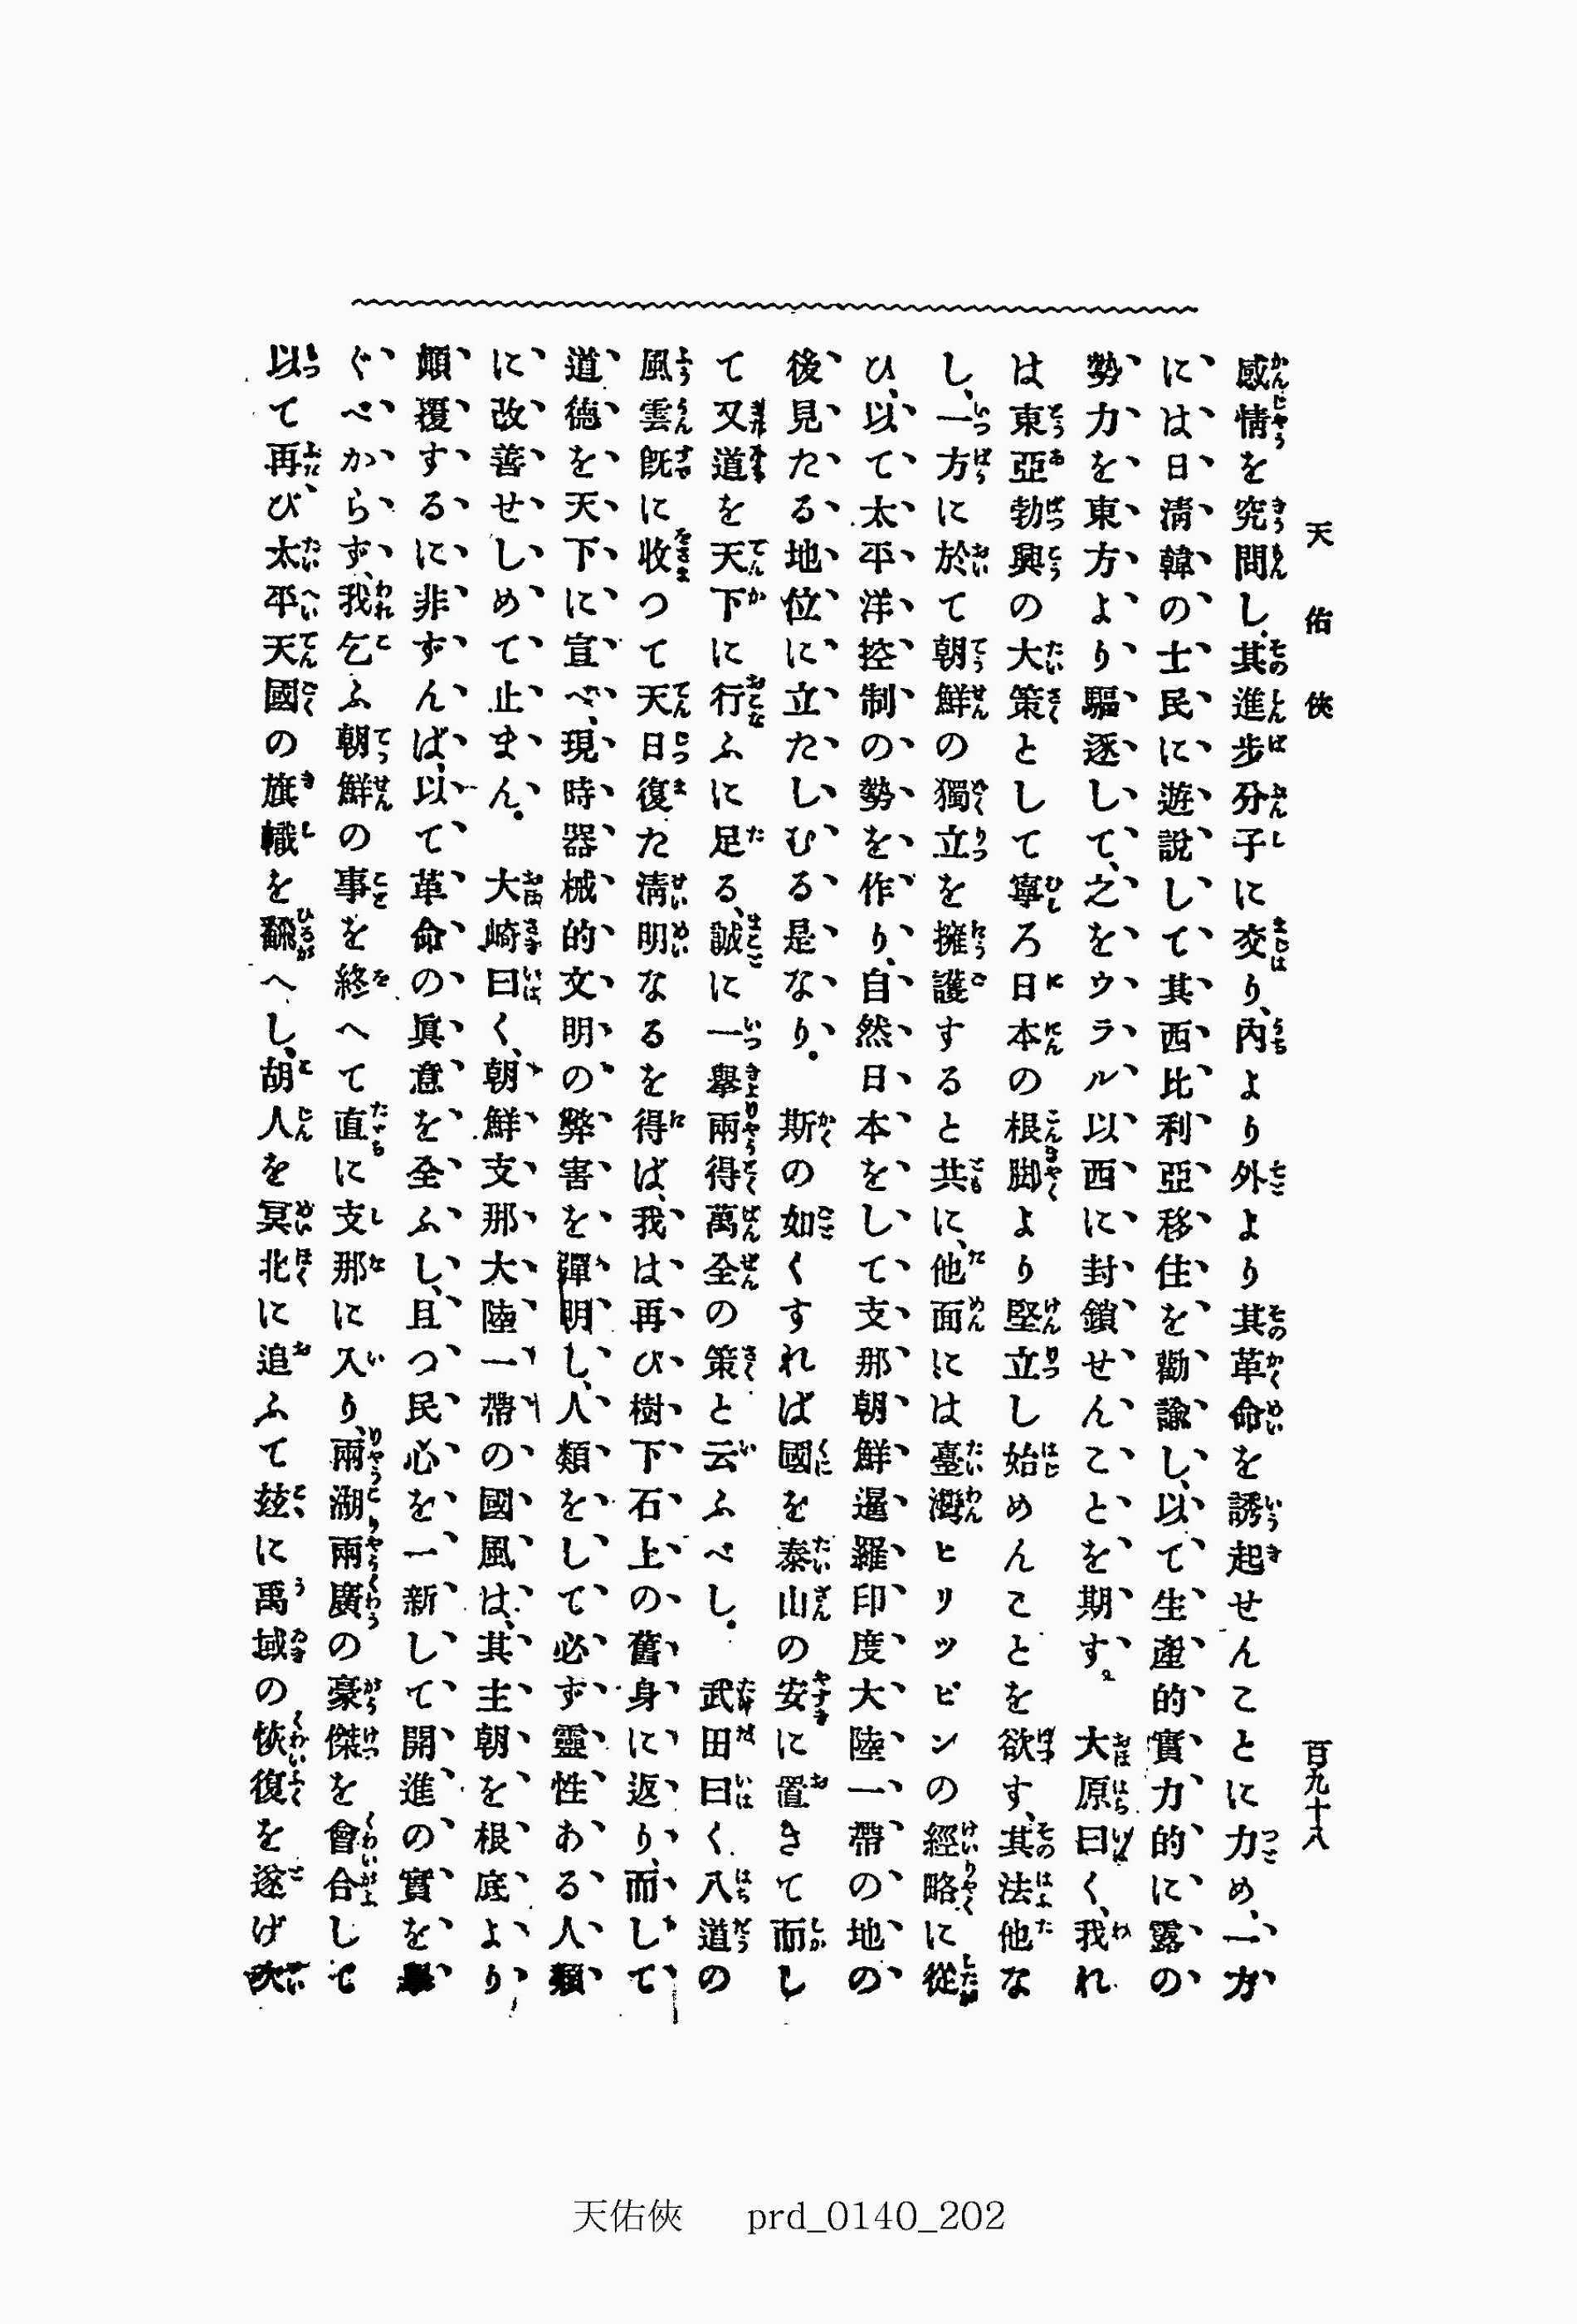 天佑俠
百九十八
感情を究問し、其進步分子に交り、內より外より其革命を誘起せんことに力め、一方
には日淸韓の士民に遊說して其西比利亞移住を勸諭し、以て生產的實力的に露の
勢力を東方より驅逐して、之をウラル以西に封鎖せんことを期す。　大原曰く、我れ
は東亞勃興の大策として寧ろ日本の根脚より堅立し始めんことを欲す、其法他な
し、一方に於て朝鮮の獨立を擁護すると共に、他面には臺灣ヒリッピンの經略に從
ひ、以て太平洋控制の勢を作り、自然日本をして支那朝鮮暹羅印度大陸一帶の地の
後見たる地位に立たしむる是なり。　斯の如くすれば國を泰山の安に置きて而し
て又道を天下に行ふに足る、誠に一擧兩得萬全の策と云ふべし。　武田曰く八道の
風雲旣に收つて天日復た淸明なるを得ば、我は再び樹下石上の舊身に返り、而して
道德を天下に宣べ、現時器械的文明の弊害を彈明し、人類をして必ず靈性ある人類
に改善せしめて止まん。　大崎曰く、朝鮮支那大陸一帶の國風は、其主朝を根底より
顚覆するに非ずんば、以て革命の眞意を全ふし、且つ民心を一新して開進の實を擧
ぐべからず、我乞ふ朝鮮の事を終へて直に支那に入り、兩湖兩廣の豪傑を會合して
以て再び太平天國の旗幟を飜へし、胡人を冥北に追ふて玆に禹域の恢復を遂げ
天佑俠　prd_0140_202